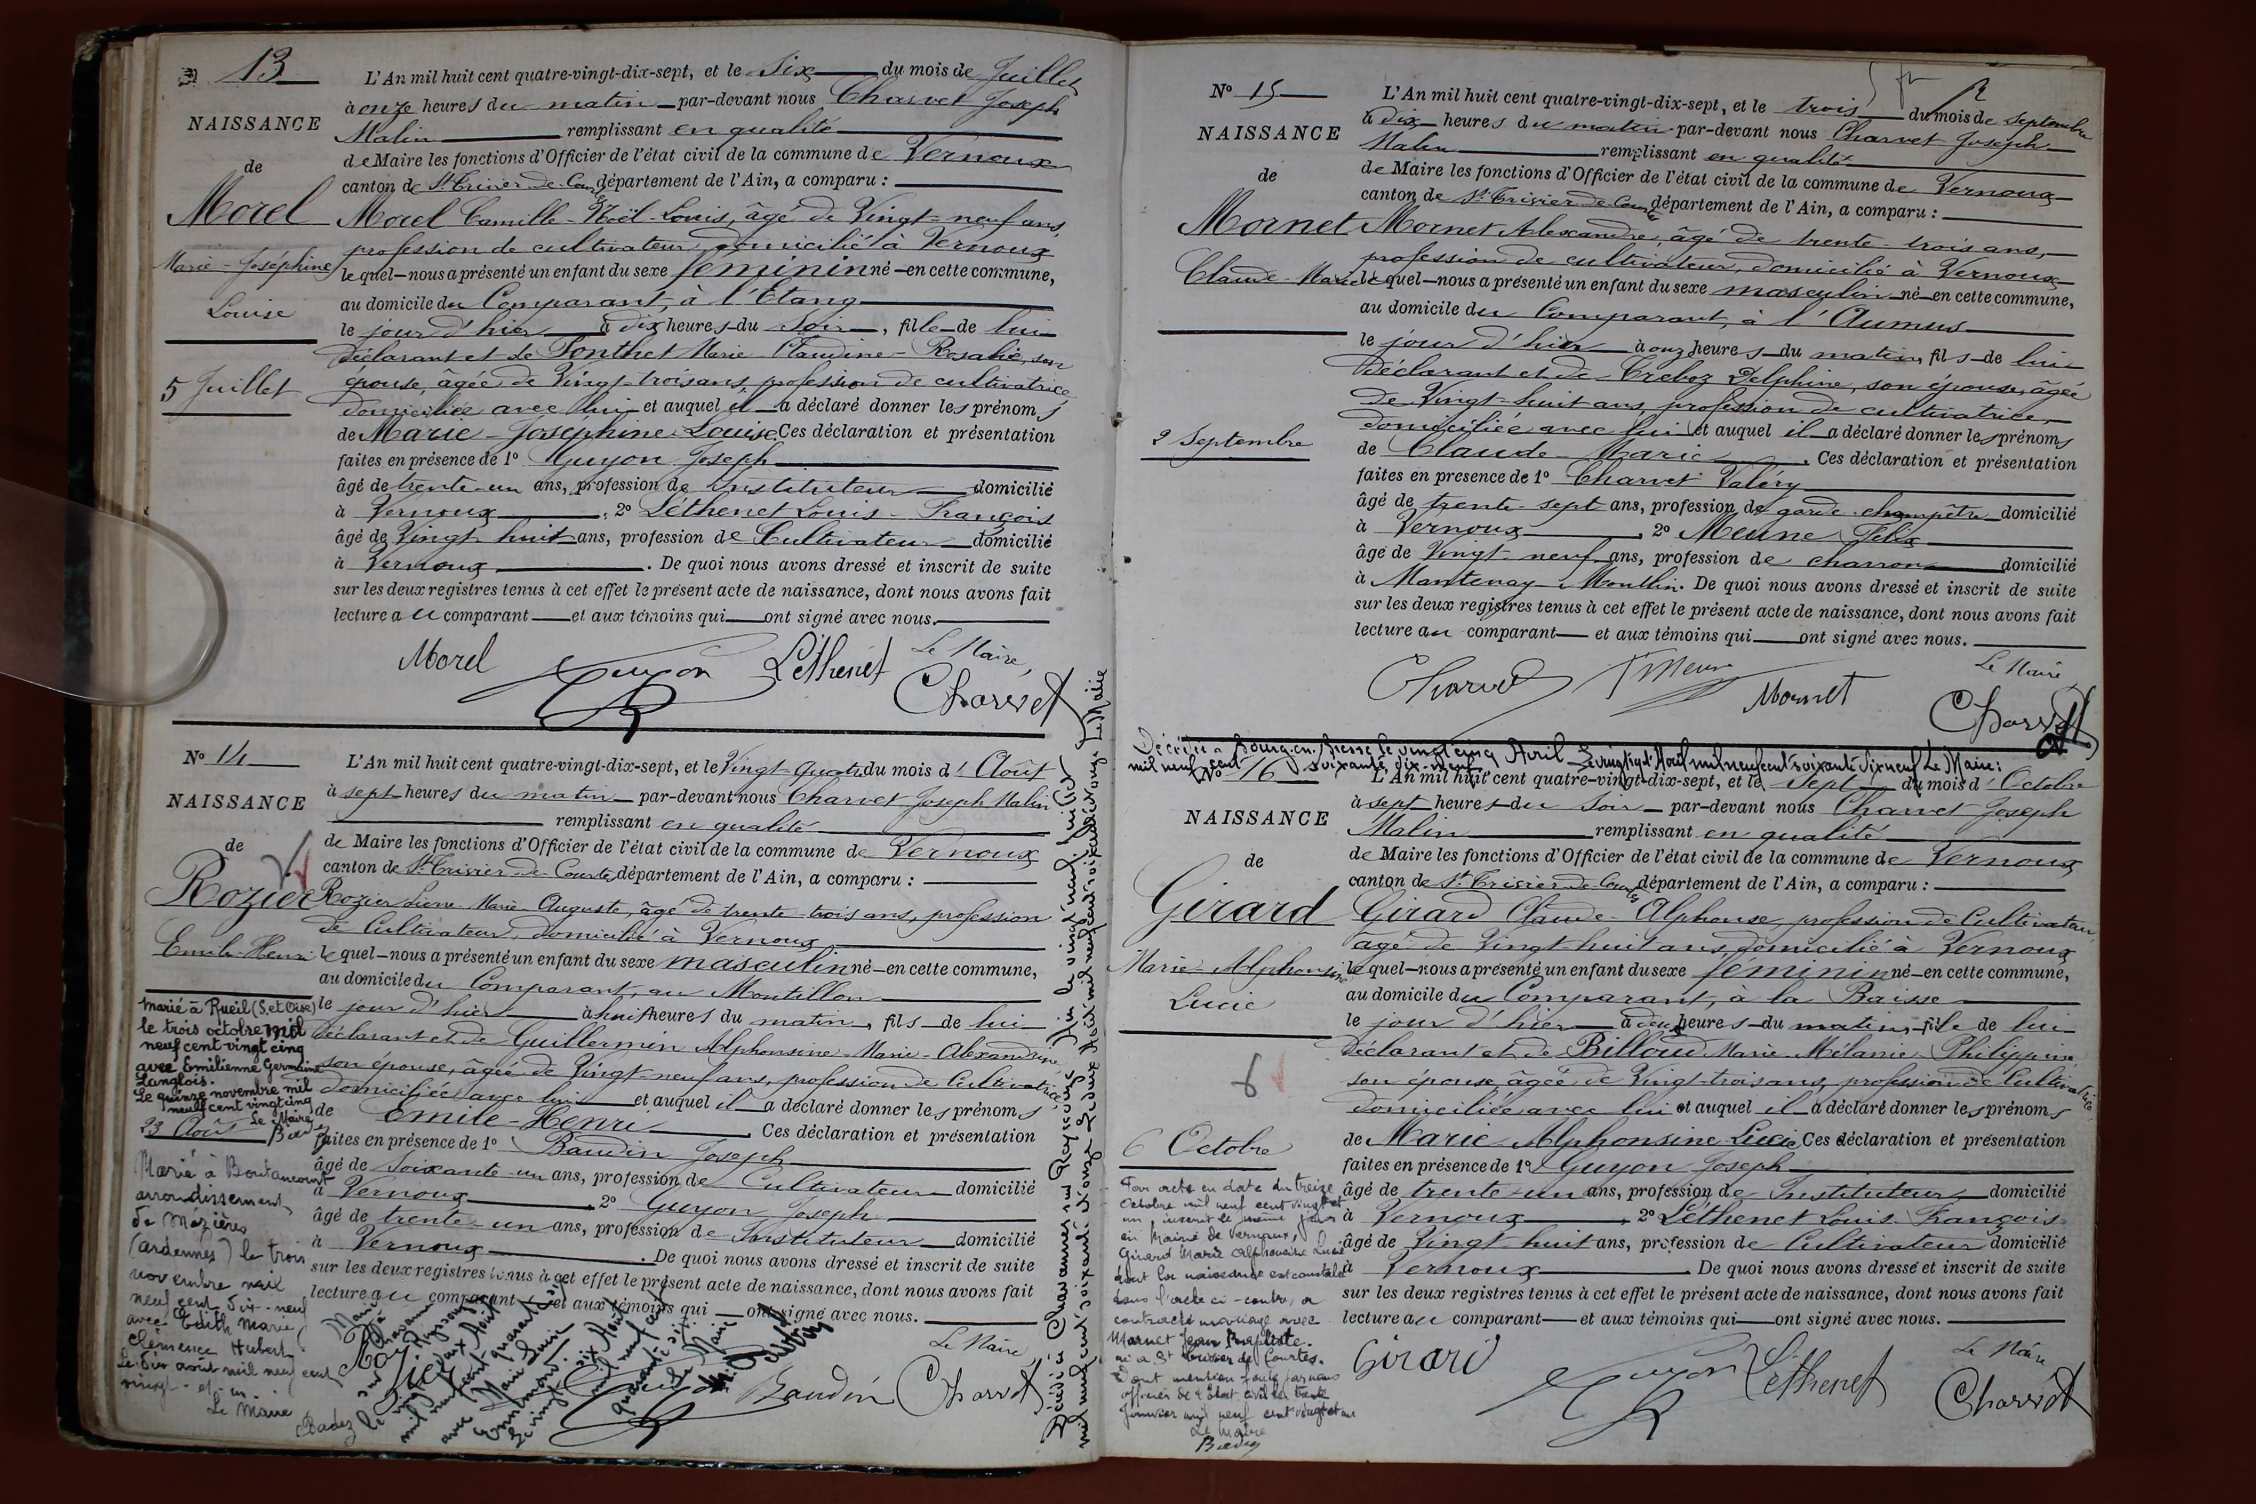 13
L'An mil huit cent quatre-vingt-dix-sept, et le six du mois de Juillet
à onze heures du matin par-devant nous Charvet Joseph
NAISSANCE
Malin remplissant en qualité
de Maire les fonctions d'Officier de l'état civil de la commune de Vernoux
de
canton de St Trivier-de-Courtes département de l'Ain, a comparu :
Morel
Morel Camille-Noël-Louis, âgé de Vingt-neuf ans,
profession de cultivateur, domicilié à Vernoux
Marie-Joséphine
lequel nous a présenté un enfant du sexe féminin né en cette commune,
Louise
au domicile du Comparant, à l'Etang
le jour d'hier à dix heures du soir, fille de lui
déclarant et de Ponthet Marie-Claudine-Rosalie, son
5 Juillet
épouse, âgée de Vingt-trois ans, profession de cultivatrice
domiciliée avec lui et auquel il a déclaré donner les prénoms
de Marie-Joséphine-Louise Ces déclaration et présentation
faites en présence de 1° Guyon Joseph
âgé de trente-un ans, profession de Instituteur domicilié
à Vernoux, 2° Léthenet Louis-François
âgé de Vingt huit ans, profession de Cultivateur domicilié
à Vernoux. De quoi nous avons dressé et inscrit de suite
sur les deux registres tenus à cet effet le présent acte de naissance, dont nous avons fait
lecture au comparant et aux témoins qui ont signé avec nous.
Morel Guyon Léthenet Le Maire,
Charvet
N° 14
L'An mil huit cent quatre-vingt-dix-sept, et le Vingt-quatre du mois d'Août
à sept heures du matin par-devant nous Charvet Joseph Malin
NAISSANCE
remplissant en qualité
de Maire les fonctions d'Officier de l'état civil de la commune de Vernoux
de
canton de St Trivier-de-Courtes département de l'Ain, a comparu :
Rozier
Rozier Pierre-Marie-Auguste, âgé de trente-trois ans, profession
de Cultivateur, domicilié à Vernoux
Emile-Henri
lequel nous a présenté un enfant du sexe masculin né en cette commune,
au domicile du Comparant, au Montillon
le jour d'hier à huit heures du matin, fils de lui
déclarant et de Guillermin Alphonsine-Marie-Alexandrine,
son épouse, âgée de Vingt-neuf ans, profession de Cultivatrice,
domiciliée avec lui et auquel il a déclaré donner les prénoms
de Emile-Henri Ces déclaration et présentation
faites en présence de 1° Baudin Joseph
âgé de Soixante-un ans, profession de Cultivateur domicilié
à Vernoux 2° Guyon Joseph
âgé de trente-un ans, profession de Instituteur domicilié
à Vernoux. De quoi nous avons dressé et inscrit de suite
sur les deux registres tenus à cet effet le présent acte de naissance, dont nous avons fait
lecture au comparant et aux témoins qui ont signé avec nous.
Le Maire
Rozier Guyon Baudin Charvet
Marié à Rueil (S. et Oise)
le trois octobre mil
neuf cent vingt cinq
avec Emilienne Germaine
Langlois.
Le quinze novembre mil
neuf cent vingt cinq
Le Maire
23 Août
Marié à Boutancourt
arrondissement
de Mézières
(ardennes) le trois
novembre mil
neuf cent dix-neuf
avec Edith Marie
Clémence Hubert
Le dix août mil neuf cent
vingt-et-un.
Le Maire
Marié
à Chavannes
sur Reyssouze
le deux Août
mil neuf cent quarante six
avec Marie
six Août
mil neuf cent
quarante six
Le Maire
Décédé à Chavannes sur Reyssouze, Ain le vingt neuf juillet
mil neuf cent soixante
Le Maire
N° 15
L'An mil huit cent quatre-vingt-dix-sept, et le trois du mois de Septembre
à dix heures du matin par-devant nous Charvet Joseph
NAISSANCE
Malin remplissant en qualité
de Maire les fonctions d'Officier de l'état civil de la commune de Vernoux
de
canton de St Trivier-de-Courtes département de l'Ain, a comparu :
Mornet
Mornet Alexandre, âgé de trente-trois ans,
profession de cultivateur, domicilié à Vernoux
Claude-Marie
lequel nous a présenté un enfant du sexe masculin né en cette commune,
au domicile du Comparant, à l'Aumus
le jour d'hier à onze heures du matin, fils de lui
déclarant et de Creboz Delphine, son épouse, âgée
de Vingt-huit ans, profession de cultivatrice,
2 Septembre
domiciliée avec lui et auquel il a déclaré donner les prénoms
de Claude-Marie. Ces déclaration et présentation
faites en présence de 1° Charvet Valéry
âgé de trente-sept ans, profession de garde-champêtre domicilié
à Vernoux, 2° Meune Félix
âgé de Vingt-neuf ans, profession de charron domicilié
à Mantenay-Montlin. De quoi nous avons dressé et inscrit de suite
sur les deux registres tenus à cet effet le présent acte de naissance, dont nous avons fait
lecture au comparant et aux témoins qui ont signé avec nous.
Charvet Meune Mornet Le Maire,
Charvet
Décédée à Bourg-en-Bresse le vingt cinq Avril
mil neuf cent soixante dix-neuf. Le vingt sept Avril mil neuf cent soixante dix neuf Le Maire :
N° 16
L'An mil huit cent quatre-vingt-dix-sept, et le sept du mois d'Octobre
à sept heures du soir par-devant nous Charvet Joseph
NAISSANCE
Malin remplissant en qualité
de Maire les fonctions d'Officier de l'état civil de la commune de Vernoux
de
canton de St Trivier-de-Courtes département de l'Ain, a comparu :
Girard
Girard Claude-Alphonse, profession de Cultivateur,
âgé de Vingt-huit ans, domicilié à Vernoux
Marie-Alphonsine
lequel nous a présenté un enfant du sexe féminin né en cette commune,
Lucie
au domicile du Comparant, à la Baisse
le jour d'hier à deux heures du matin, fille de lui
déclarant et de Billoud Marie-Mélanie-Philippine
son épouse, âgée de Vingt-trois ans, profession de Cultivatrice
domiciliée avec lui et auquel il a déclaré donner les prénoms
6 Octobre
de Marie Alphonsine-Lucie Ces déclaration et présentation
faites en présence de 1° Guyon Joseph
âgé de trente-un ans, profession de Instituteur domicilié
à Vernoux, 2° Léthenet Louis-François
âgé de Vingt-huit ans, profession de Cultivateur domicilié
à Vernoux. De quoi nous avons dressé et inscrit de suite
sur les deux registres tenus à cet effet le présent acte de naissance, dont nous avons fait
lecture au comparant et aux témoins qui ont signé avec nous.
Girard Guyon Léthenet Le Maire
Charvet
Par acte en date du treize
Octobre mil neuf cent vingt et
un, inscrit le même jour
en Mairie de Vernoux,
Girard Marie Alphonsine Lucie
dont la naissance est constatée
dans l'acte ci-contre, a
contracté mariage avec
Mornet Jean Baptiste.
né à St Trivier de Courtes.
Dont mention faite par nous
officier de l'Etat civil le trente
mil neuf cent vingt et un
Le Maire